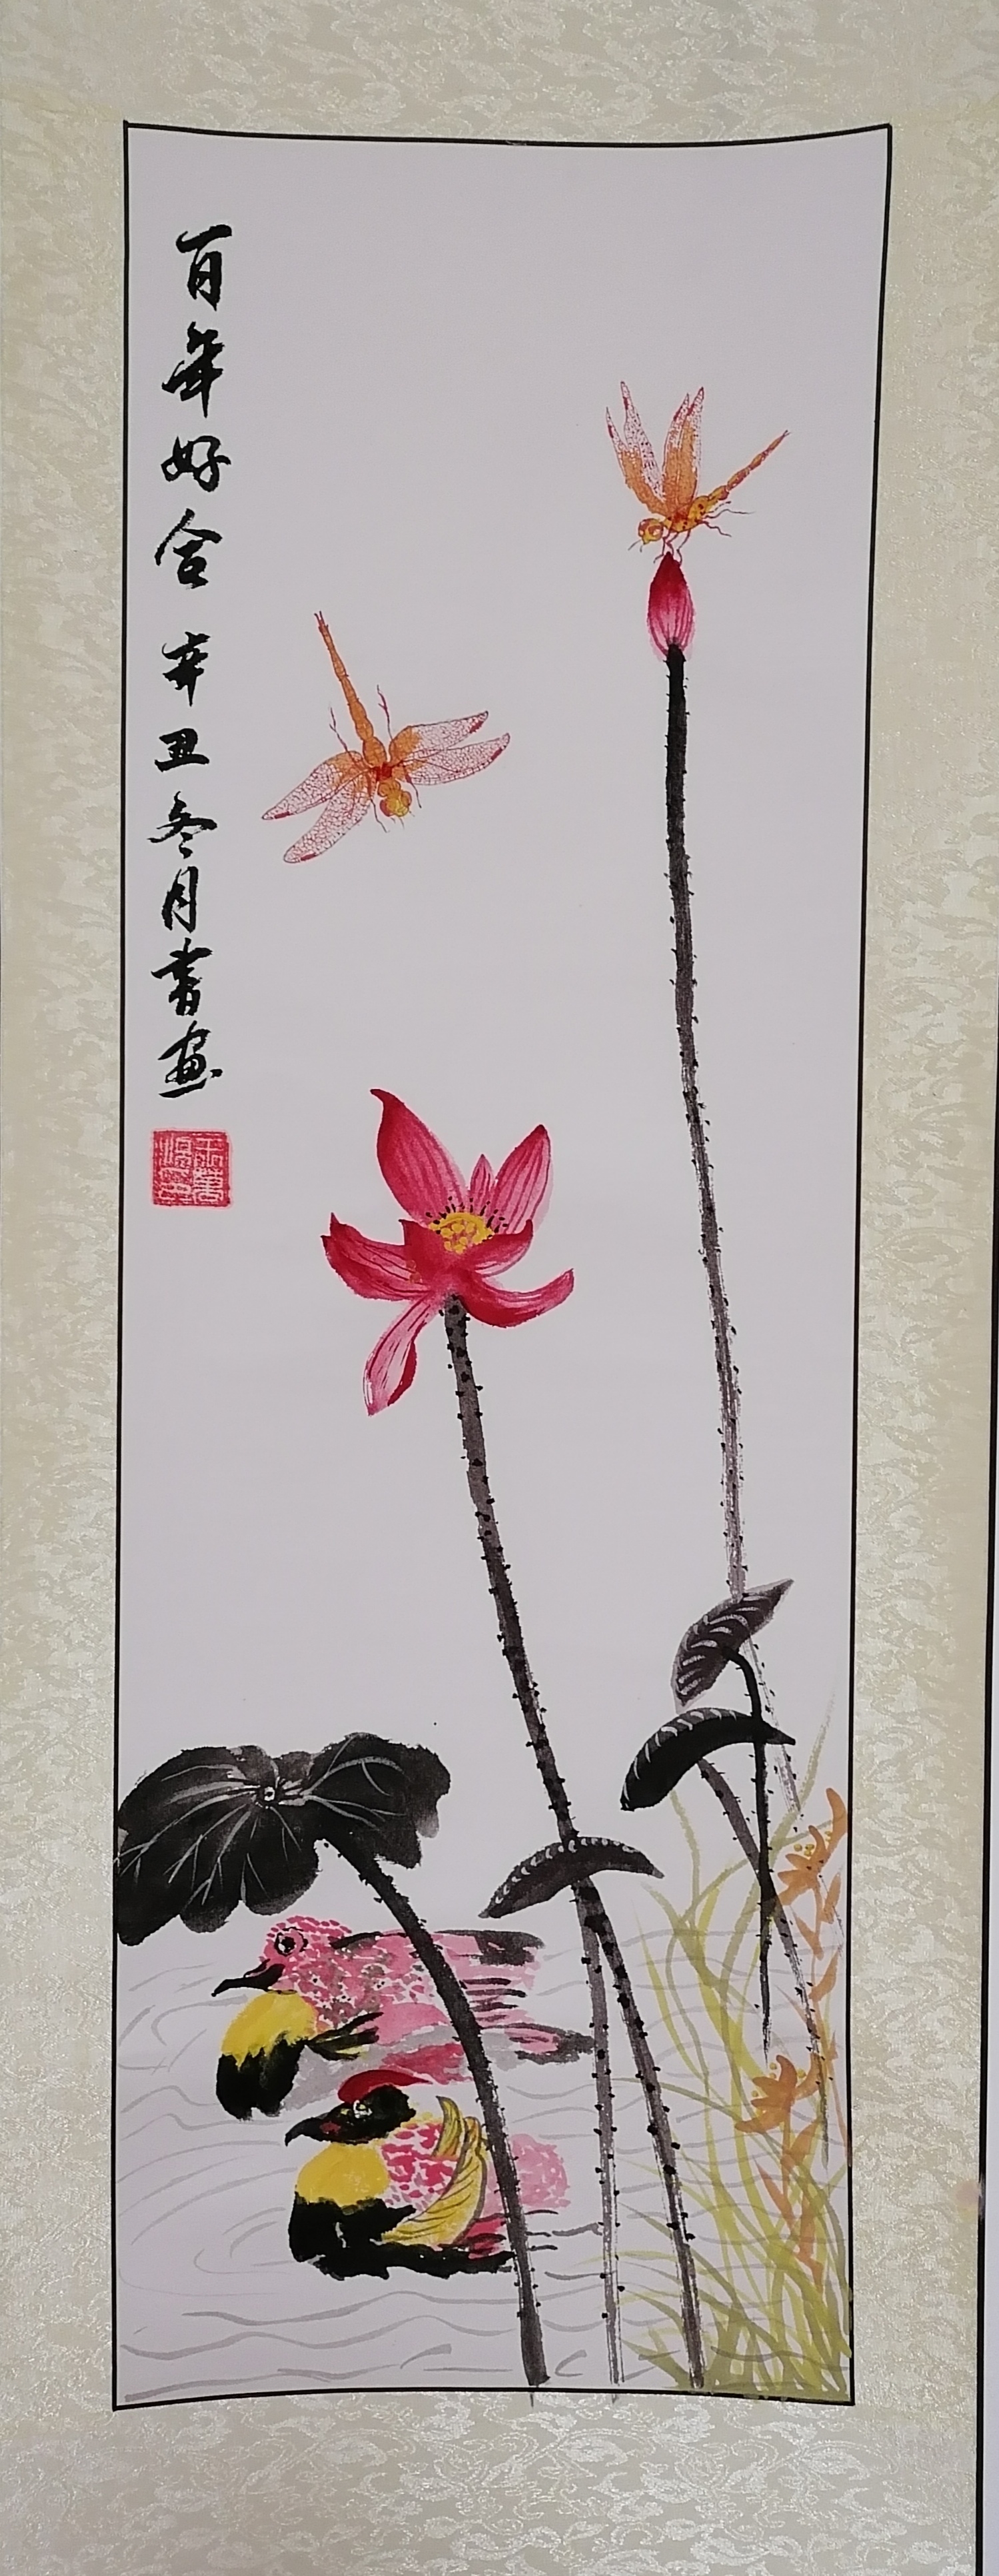 百年好合 辛丑冬月書画